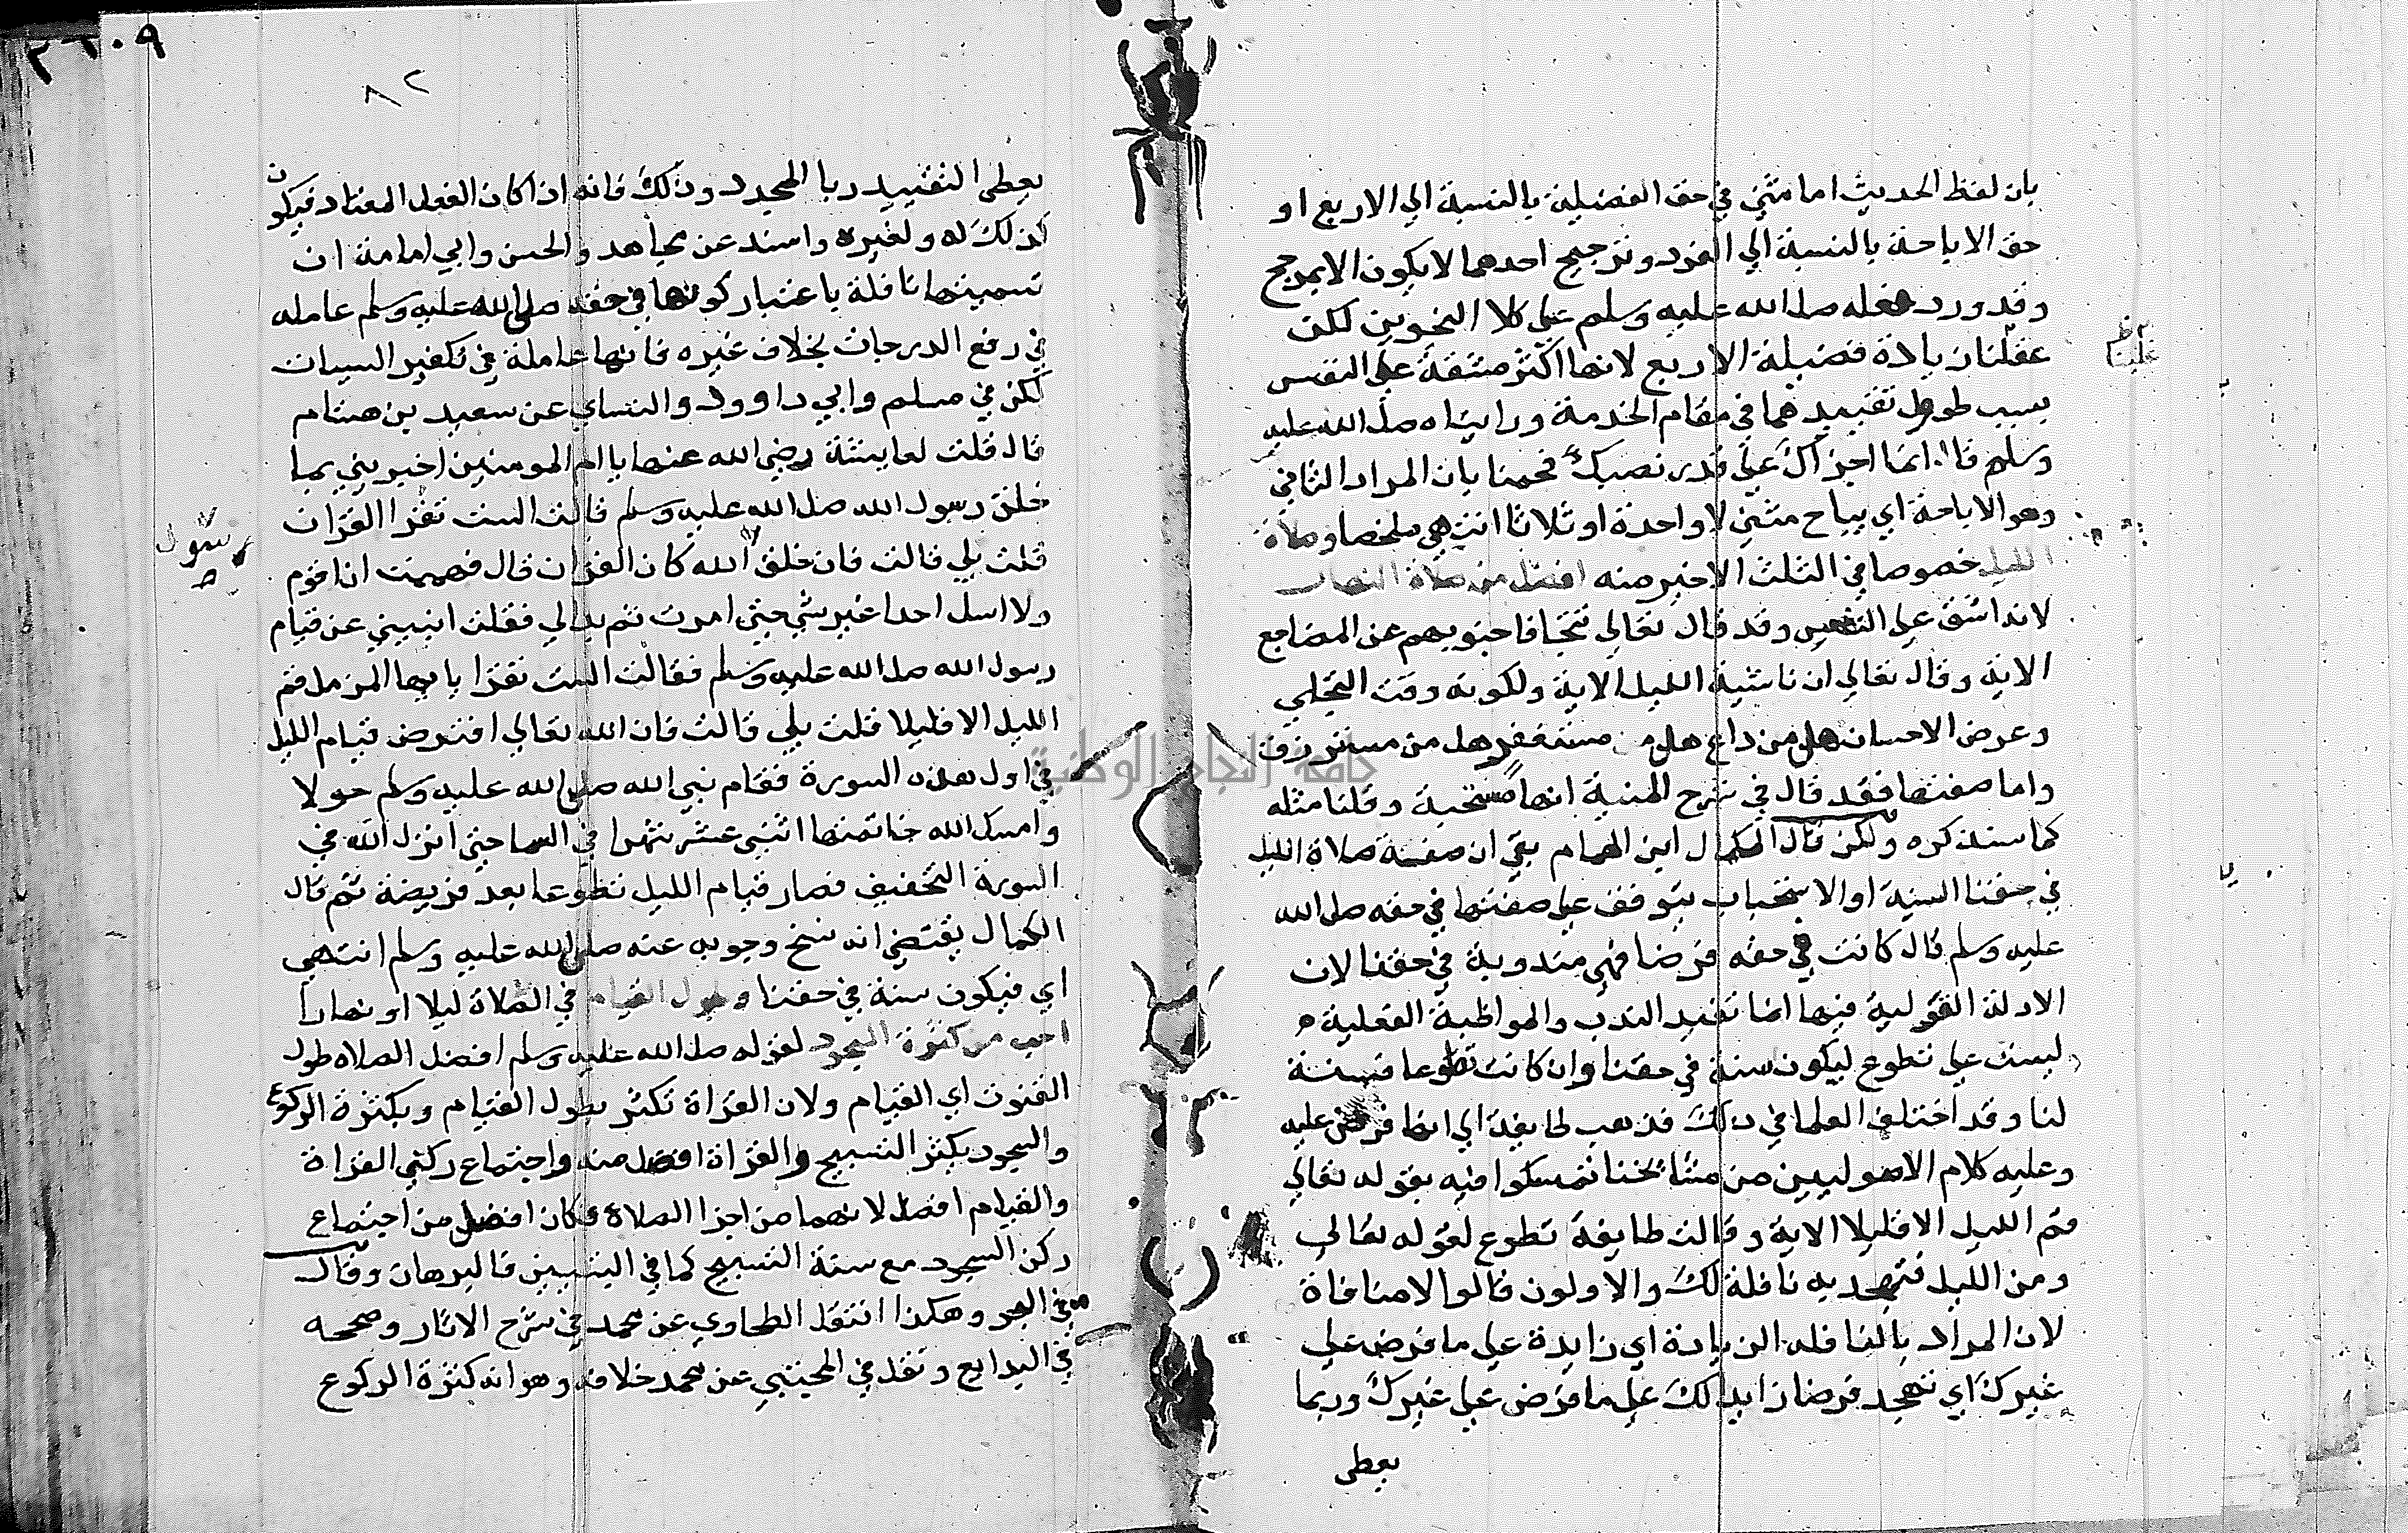 بان لفظ الحديث اما مثني في حق الفضيلة بالنسبة الي الاربع او
حق الاباحة بالنسبة الي الفرد وترجيح احدهما لا يكون الا بمرجح
وقد ورد فعله صلى الله عليه وسلم علي كلا النحوين لكن
عقلنا زيادة فضيلة الاربع لانها اكثر مشقة علي النفس
بسبب طول تقييدهما في مقام الخدمة ورايناه صلى الله عليه
وسلم قال انما اجرك علي قدر نصبك فحكمنا بان المراد الثاني
وهو الاباحة اي يباح مثني لا واحدة او ثلاثا انتهي ملخصا وصلاة
الليل خصوصا في الثلث الاخير منه افضل من صلاة النهار
لانه اشق علي النفس وقد قال تعالي تتجافا جنوبهم عن المضاجع
الاية وقال تعالي ان ناشية الليل الاية ولكونه وقت التجلي
وعرض الاحسان هل من داع هل من مستغفر هل من مسترزق
واما صفتها فقد قال في شرح المنية انها مستحبة وقلنا مثله
كما سنذكره ولكن قال الكمال ابن الهمام بقي ان صفة صلاة الليل
في حقنا السنية او الاستحباب يتوقف علي صفتها في حقه صلى الله
عليه وسلم قال كانت في حقه فرضا فهي مندوبة في حقنا لان
الادلة القولية فيها انما تفيد الندب والمواظبة الفعلية
ليست علي تطوع ليكون سنة في حقنا وان كانت تطوعا فسنة
لنا وقد اختلف العلما في ذلك فذهب طايفة الي انها فرض عليه
وعليه كلام الاصوليين من مشائخنا تمسكوا فيه بقوله تعالي
قم الليل الا قليلا الاية وقالت طايفة تطوع لقوله تعالي
ومن الليل فتهجد به نافلة لك والاولون قالوا لا منافاة
لان المراد بالنافلة الزيادة اي زايدة علي ما فرض علي
غيرك اي تهجد فرضا زايد لك علي ما فرض علي غيرك وربما
يعطي
٨٢
يعطي التقييد بالمجرور ذلك فانه اذا كان النفل المعتاد فيكون
كذلك له ولغيره واسند عن مجاهد والحسن وابي امامة ان
تسميتها نافلة باعتبار كونها في حقه صلى الله عليه وسلم عامله
في رفع الدرجات بخلاف غيره فانها عاملة في تكفير السيات
لكن في مسلم وابي داوود والنساي عن سعيد بن هشام
قال قلت لعايشة رضي الله عنها يا ام المومنين اخبريني بما
خلق رسول الله صلى الله عليه وسلم قالت الست تقرا القران
قلت بلي قالت فان خلق الله كان القران قال فهممت ان اقوم
رسول
ولا اسل احدا غير شي حتي امرت ثم بدا لي فقلت انبيني عن قيام
رسول الله صلى الله عليه وسلم فقالت الست تقرا يا ايها المزمل قم
الليل الا قليلا قلت بلي قالت فان الله تعالي افترض قيام الليل
في اول هذه السورة فقام نبي الله صلى الله عليه وسلم حولا
وامسك الله خاتمتها اثني عشر شهرا في السما حتي انزل الله في
السورة التخفيف فصار قيام الليل تطوعا بعد فريضة ثم قال
الكمال يقتضي انه نسخ وجوبه عنه صلى الله عليه وسلم انتهي
اي فيكون سنة في حقنا وطول القيام في الصلاة ليلا او نهارا
احب من كثرة السجود لقوله صلى الله عليه وسلم افضل الصلاه طول
القنوت اي القيام ولان القراة تكثر بطول القيام وبكثرة الركوع
والسجود يكثر التسبيح والقراة افضل منه واجتماع ركني القراة
والقيام افضل لانهما من اجزا الصلاة فكان افضل من اجتماع
ركن السجود مع سنة التسبيح كما في التبيين فالبرهان وقال
في البحر وهكذا انتقل الطحاوي عن محمد في شرح الاثار وصححه
في البدايع ونقل في المجتبي عن محمد خلافه وهو ان كثرة الركوع
جامعة النجاح الوطنية